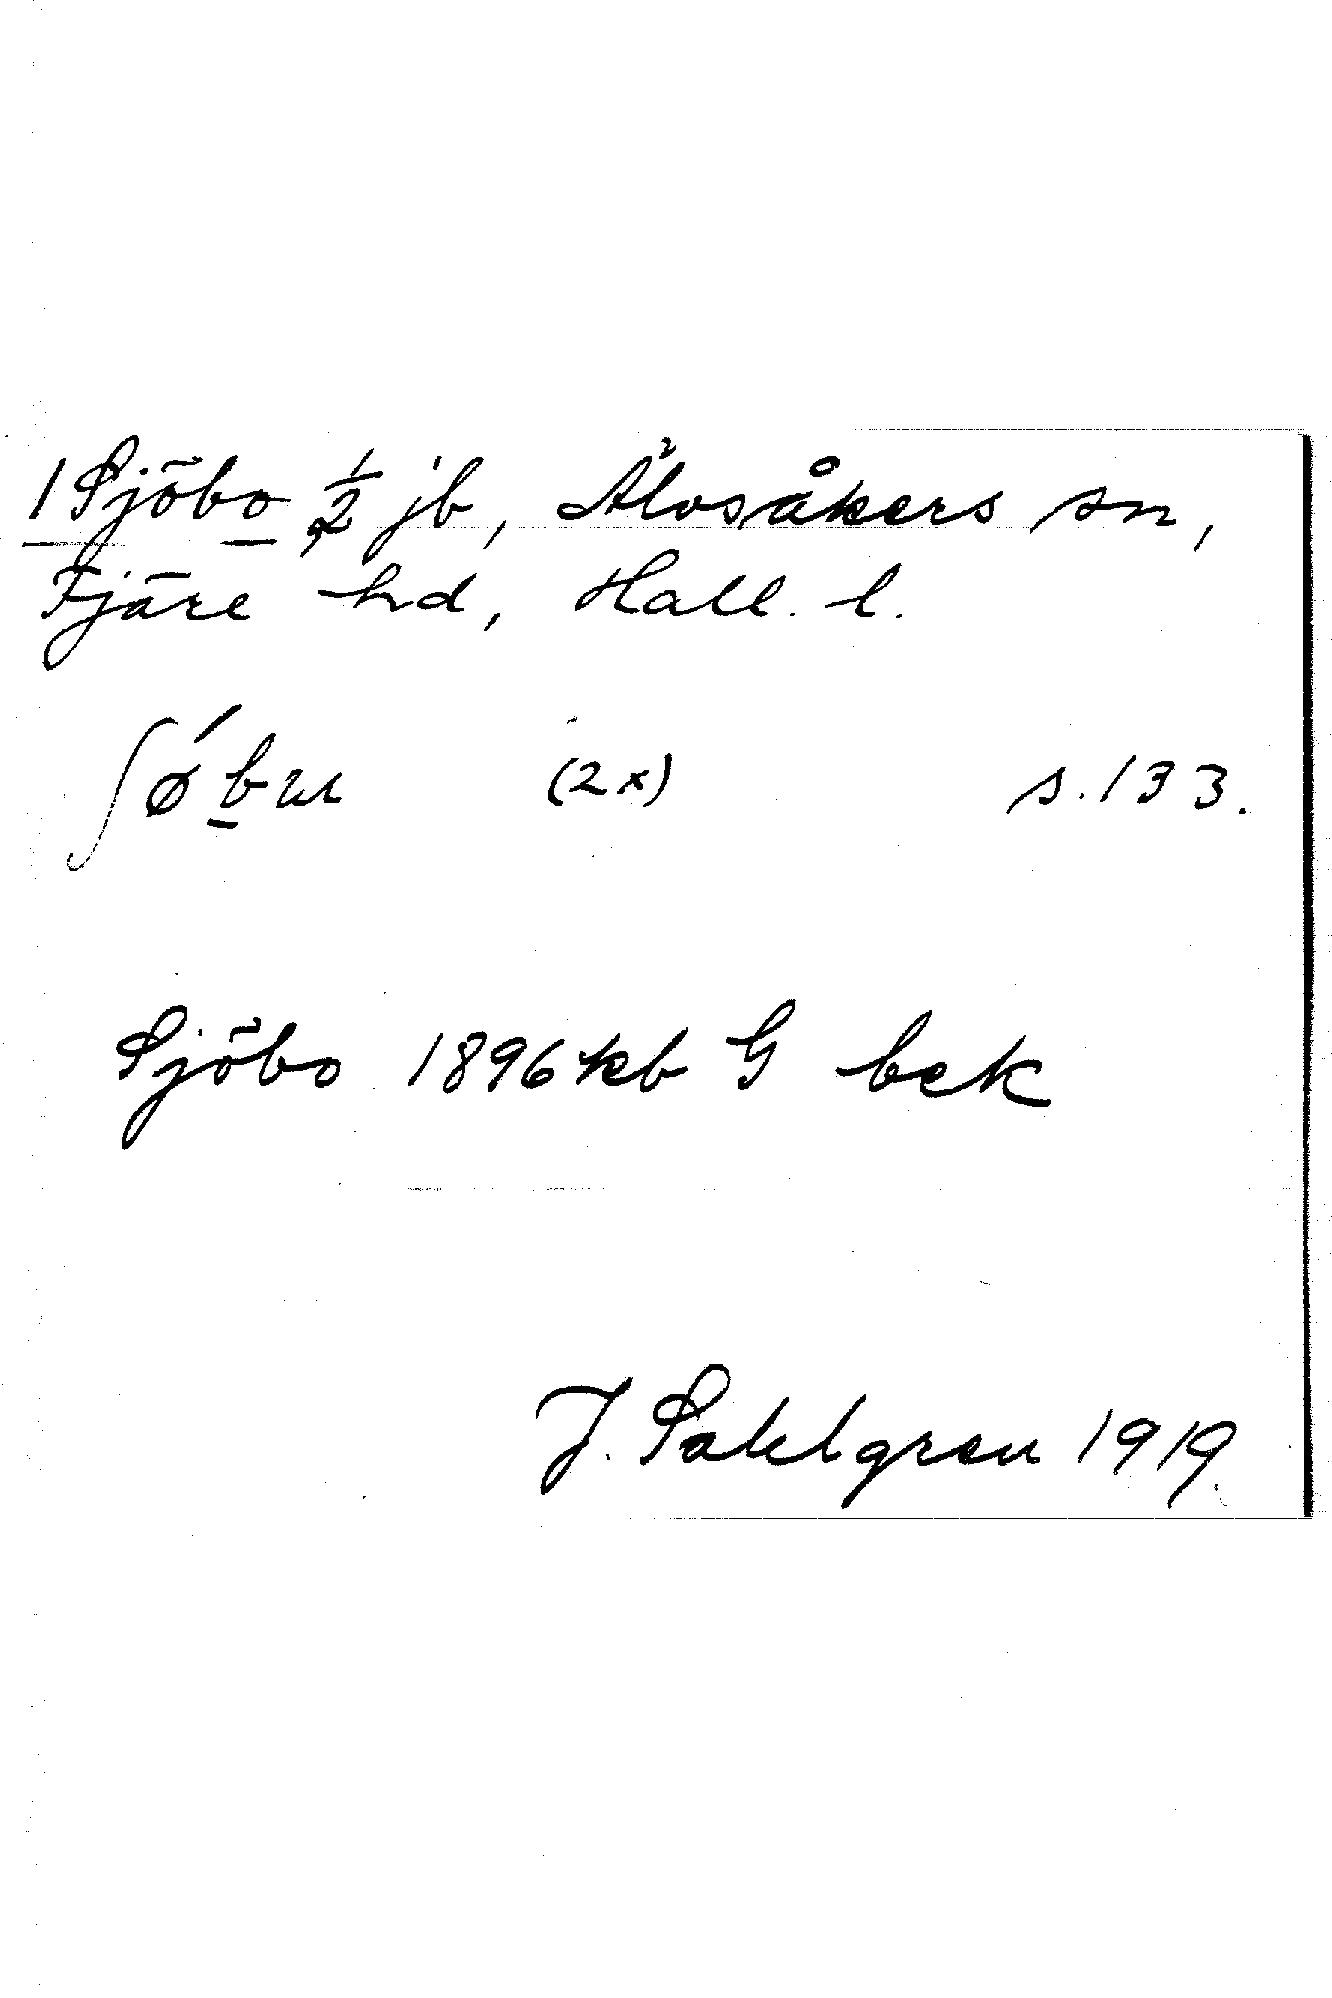 1 Sjöbo ½ jb, Älvsåkers sn,
Fjäre hd, Hall. l.
ʃǿbu (2x) s. 133.
Sjöbo 1896 kb G bek
J. Sahlgren 1919